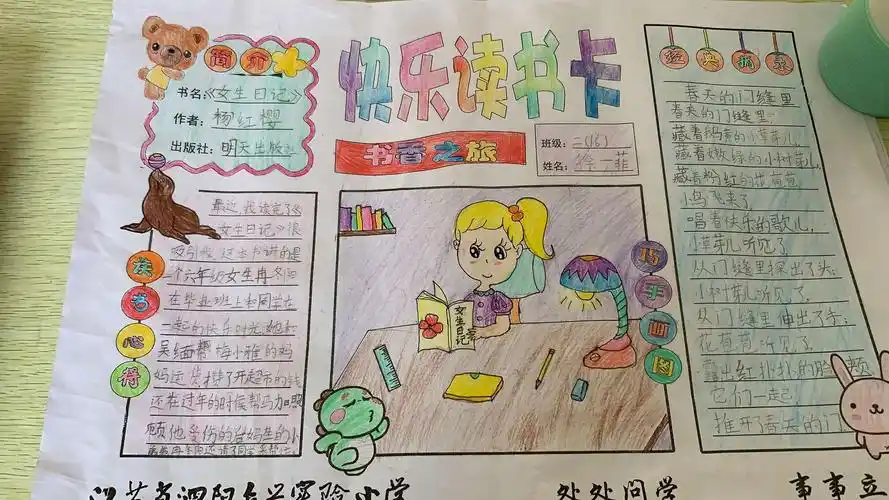 快乐读书卡
简介
书名:《女生日记》
作者:杨红樱
出版社:明天出版社
书香之旅
班级:二(16)
姓名:徐一菲
读书心得
最近,我读完了《
女生日记》很
吸引我 这本书讲的是
一个六年级女生冉冬阳
在毕业班上和同学在
一起的快乐时光,她和
吴缅帮梅小雅的妈
妈运货挣了开超市的钱
还在过年的时候帮马加
顾他受伤的爸妈生的小
女生日记
巧手画图
经典摘录
春天的门缝里
春天的门缝里,
藏着鹅黄的小草芽儿,
藏着嫩绿的小树芽儿,
藏着粉红的花骨苞,
小鸟飞来了,
唱着快乐的歌儿,
小草芽儿听见了
从门缝里探出了头;
小树芽儿听见了,
从门缝里伸出了手;
花骨苞听见了
露出红扑扑的脸颊
它们一起
推开了春天的门
江苏省泗阳县兰实验小学
处处问学
事事立